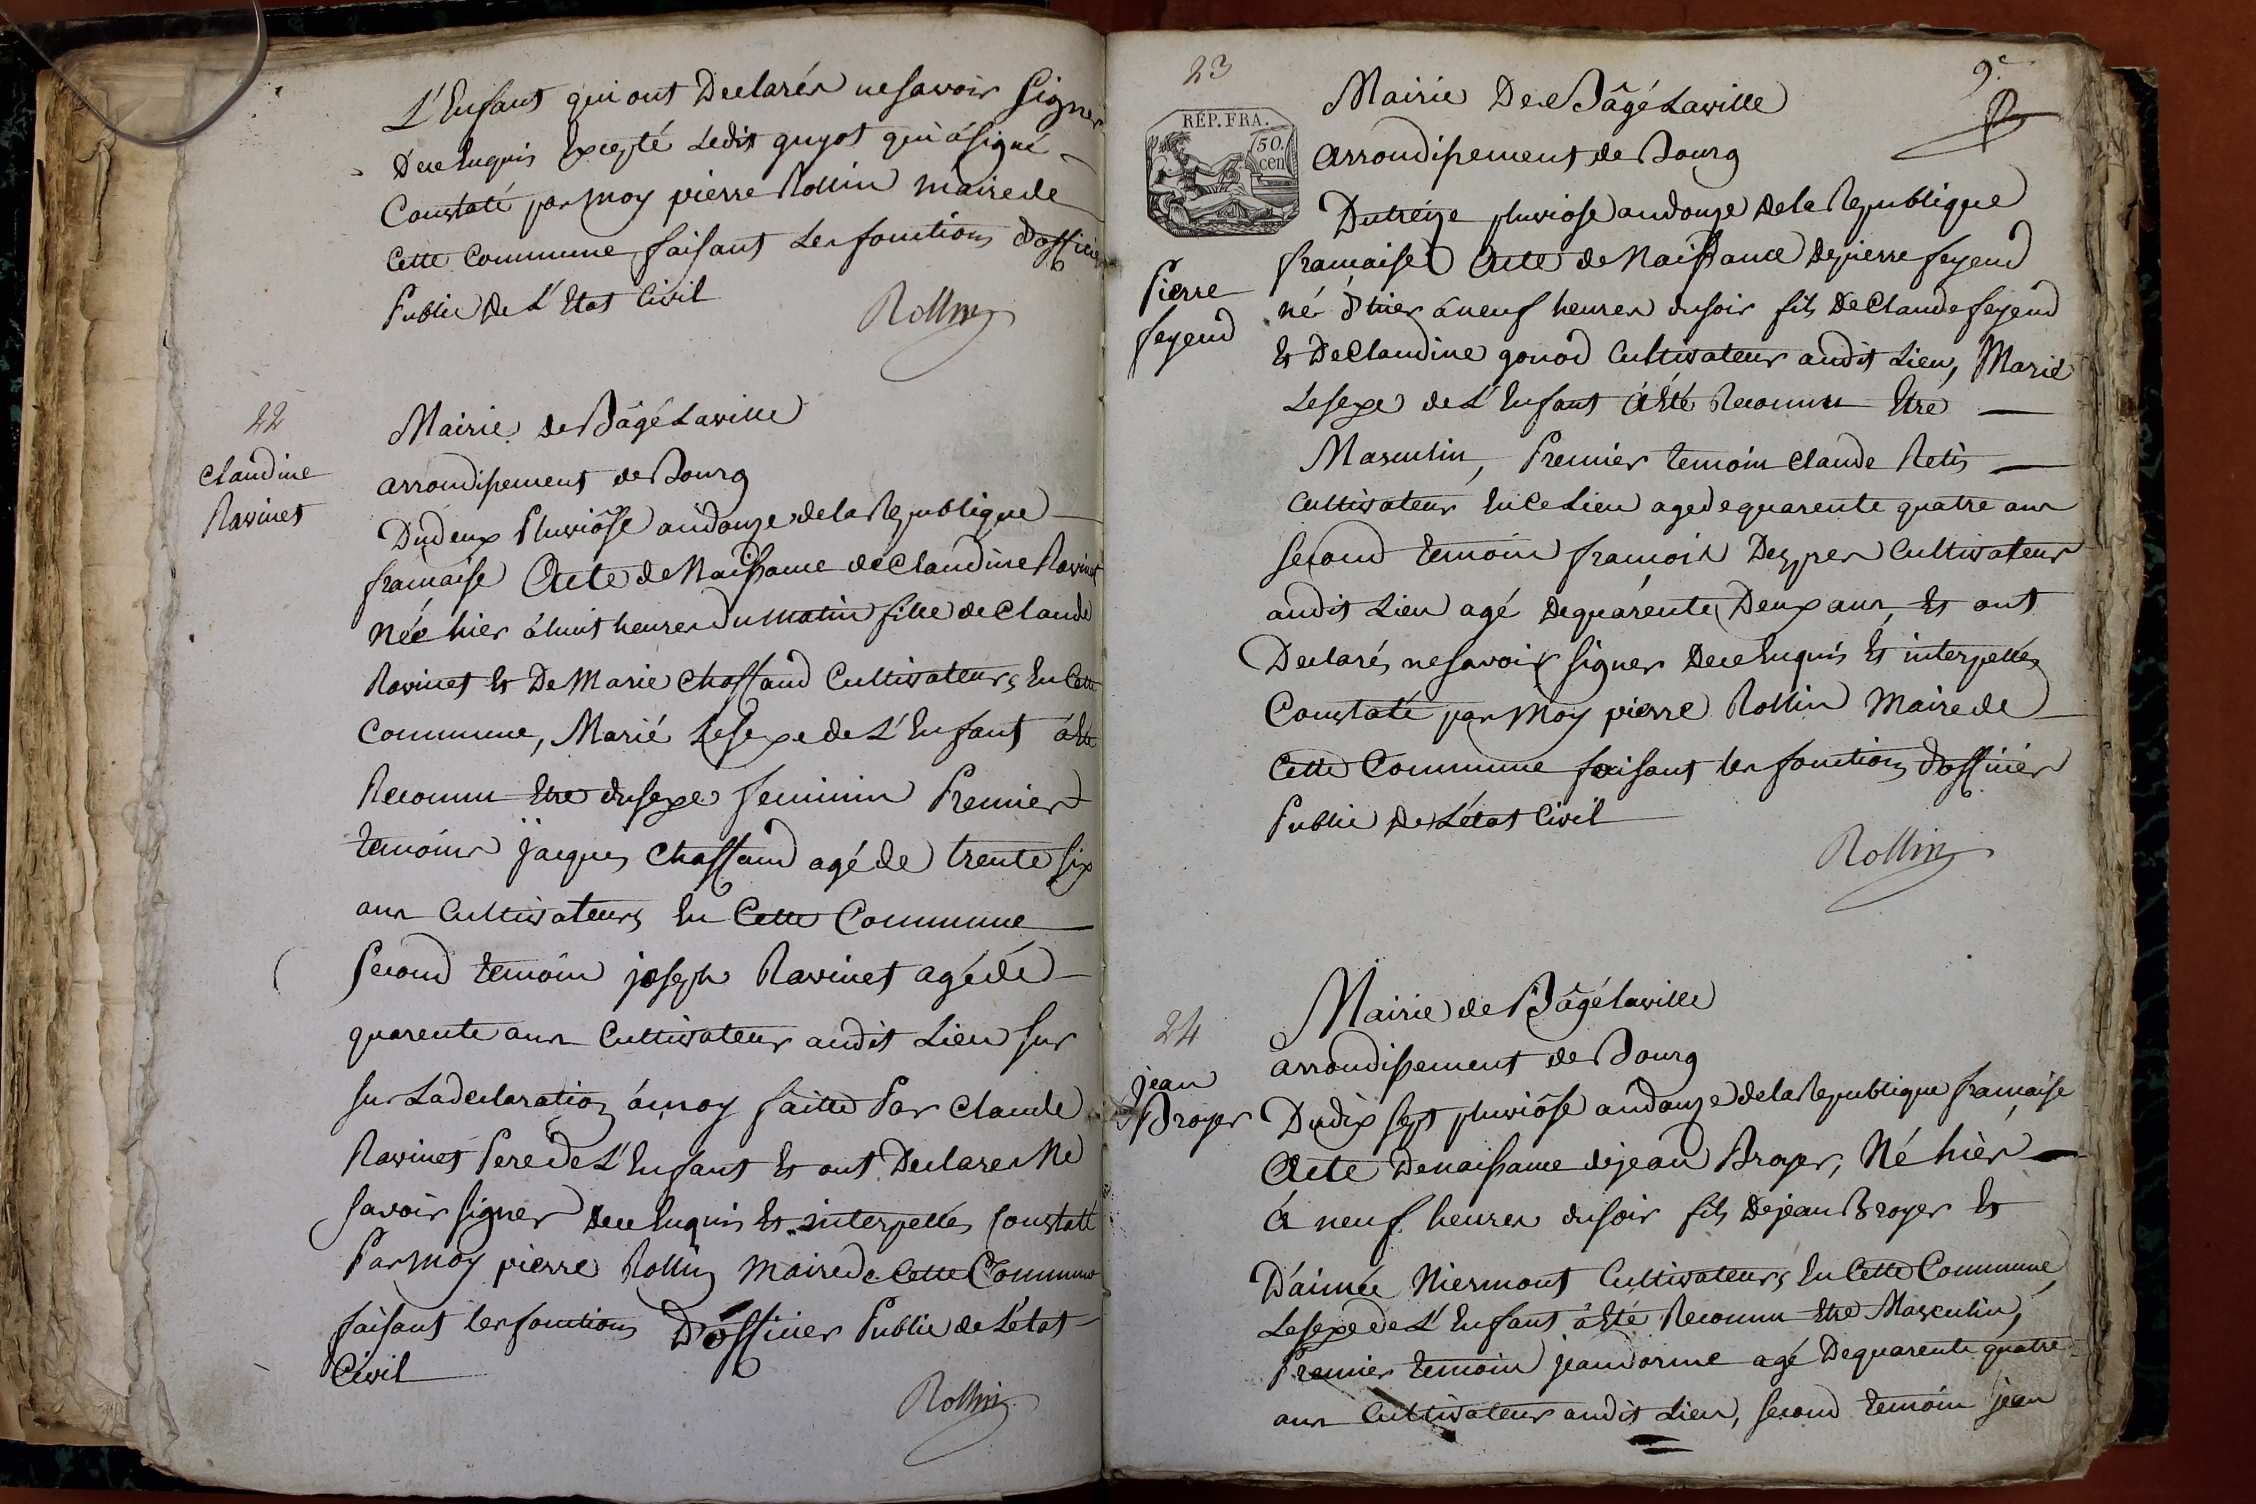 L'Enfant qui ont Declarés ne savoir Signer
Dece Enquis Excepté Ledit guyot qui à signé
Constaté par moy pierre Rollin maire de
Cette Commune faisant Les fonctions dofficier
Public De L'Etat Civil
Rollin
22
Claudine
Ravinet
Mairie de Bâgé Laville
arrondissement de Bourg
Du deux Pluviôse an douze de la Republique
française Acte de Naissance de Claudine Ravinet
Née hier à huit heures du matin fille de Claude
Ravinet Et De Marie Chaffaud Cultivateurs En Cette
Commune, Marié Le sexe de L'Enfant à Eté
Reconnu Etre du sexe feminin Premier
temoins jacques Chaffaud agé de trente six
ans Cultivateurs En Cette Commune
Second temoin joseph Ravinet agé de
quarente ans Cultivateur audit Lieu sur
sur La declaration à moy faitte Par Claude
Ravinet Pere de L'Enfant Et ont Declarer Ne
savoir signer Dece Enquis Et interpellés Constatt
Par moy pierre Rollin maire de Cette Commune
faisant les fonctions D'officier Public de L'état
Civil
Rollin
23
9.e
RÉP. FRA.
50.
cen
Mairie De Bâgé Laville
arrondissement de Bourg
Pierre
feyeud
Du treize pluviose an douze de la Republique
francaise Acte de Naissance De pierre feyeud
né d'hier à neuf heures du soir fils De Claude feyeud
Et De Claudine gonod Cultivateur audit Lieu, Marié
Le sexe de L'Enfant à Eté Reconnu Etre
Masculin, Premier temoin Claude Retis
Cultivateur En ce Lieu agé de quarente quatre ans
second temoin francois Desprer Cultivateur
audit Lieu agé de quarente Deux ans, Et ont
Declarés ne savoir signer Dece Enquis Et interpellés
Constaté par Moy pierre Rollin Maire de
Cette Commune faisant les fonctions d'officier
Public de L'état Civil
Rollin
24
jean
Broyer
Mairie de Bâgé laville
arrondissement de Bourg
Du dix sept pluviôse an douze de la Republique francaise
Acte De naissance de jean Broyer, Né hièr
à neuf heures du soir fils De jean Broyer Et
D'aimée Niermont Cultivateurs En Cette Commune
Le sexe de L'Enfant à Eté Reconnu Etre Masculin,
Premier temoin jean dorme agé De quarente quatre
ans Cultivateur audit Lieu, second temoin jean